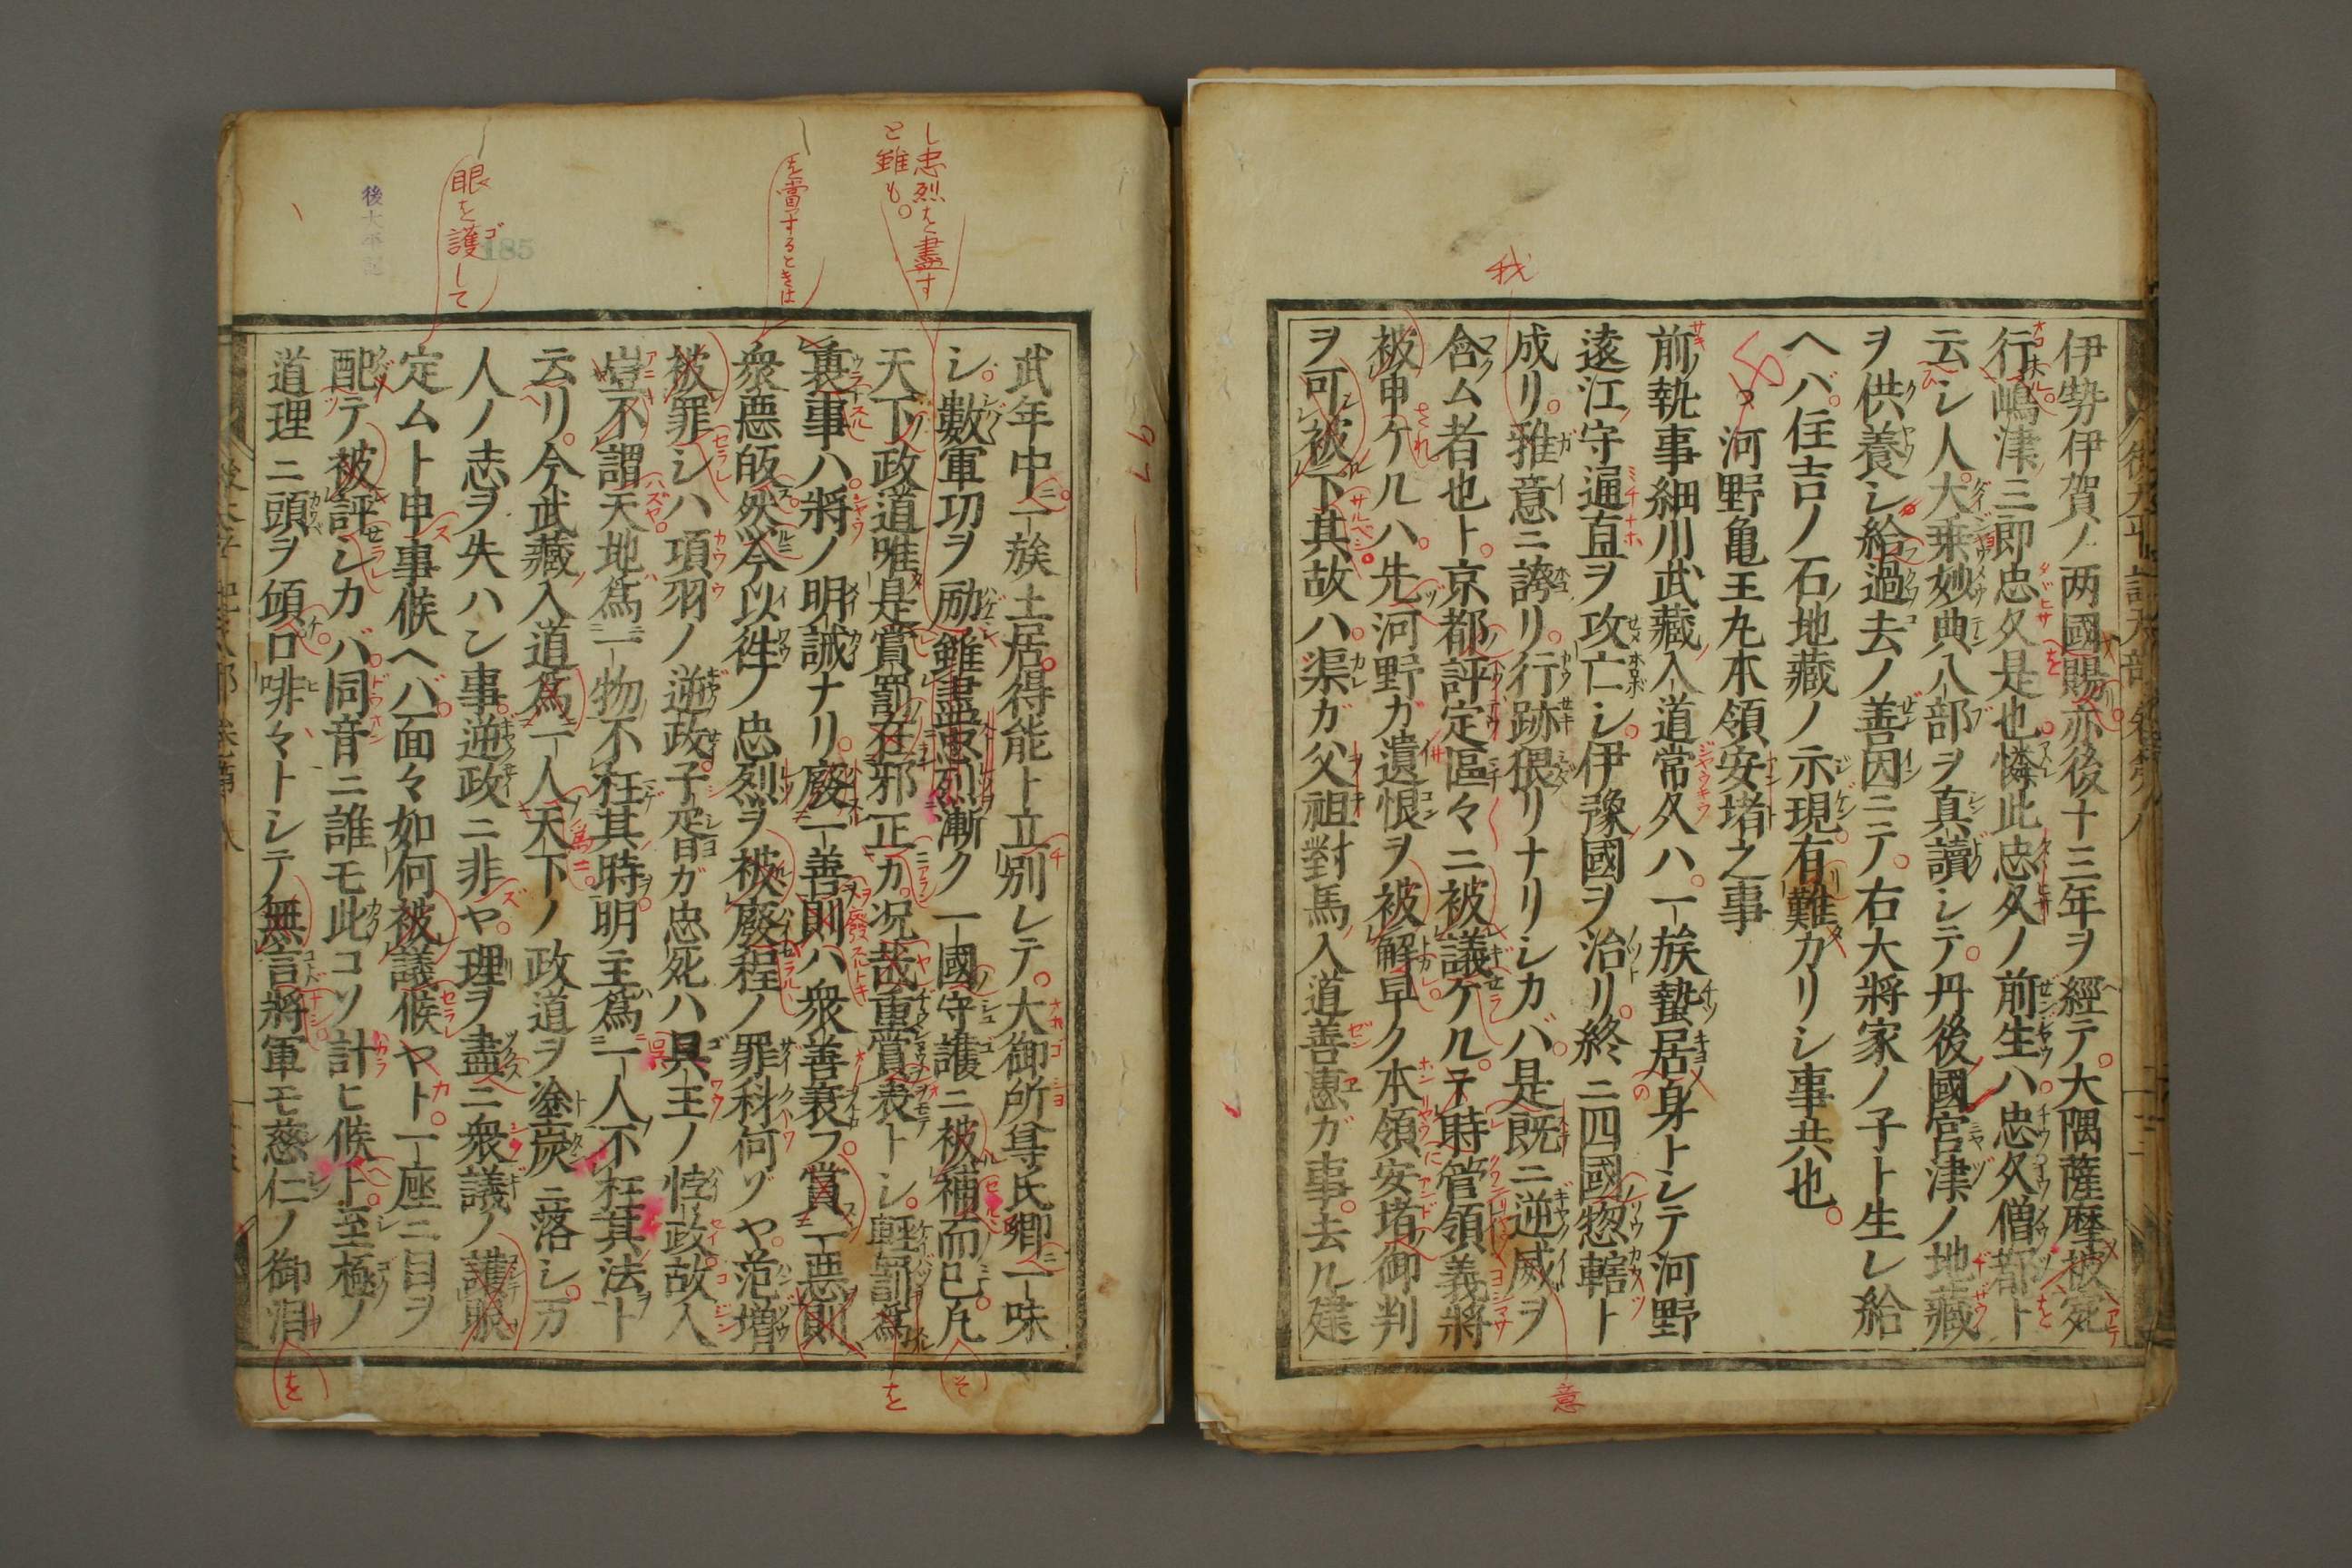 伊勢伊賀ノ両國賜亦後十三年ヲ經テ大隅薩摩被宛
行嶋津三郎忠久是也憐此忠久ノ前生ハ忠久僧都ト
云シ人大乗妙典八部ヲ真讀シテ丹後國宮津ノ地藏
ヲ供養シ給過去ノ善因ニテ右大將家ノ子ト生レ給
ヘバ住吉ノ石地藏ノ示現有難カリシ事共也
河野亀王丸本領安堵之事
前ノ執事細川武藏入道常久ハ一族蟄居身トシテ河野
遠江守通直ヲ攻亡シ伊豫國ヲ治リ終ニ四國惣轄ト
成リ雅意ニ誇リ行跡猥リナリシカバ是既ニ逆威ヲ
含ム者也ト京都評定區々ニ被議ケル于時管領義將
被申ケルハ先河野ガ遺恨ヲ被解早ク本領安堵御判
ヲ可被下其故ハ渠ガ父祖對馬入道善惠ガ事去ル建
武年中一族土居得能ト立別レテ大御所尊氏卿一味
シ數軍功ヲ励雖盡忠烈漸ク一國守護ニ被補而已凡
天下政道唯是賞罰在邪正カ况哉重賞表トシ軽罰爲
裏事ハ將ノ明誡ナリ廢一善則ハ衆善衰フ賞一惡則
衆惡皈然今以徃ノ忠烈ヲ被廢程ノ罪科何ゾヤ范増
被罪シハ項羽ノ逆政子胥ガ忠死ハ呉王ノ悖政故人
豈不謂天地爲一物不枉其時明主爲一人不枉其法ト
云リ今武藏入道爲一人天下ノ政道ヲ塗炭ニ落シ万
人ノ志ヲ失ハン事逆政ニ非ヤ理ヲ盡ニ衆議ノ護眼
定ムト申事候ヘバ面々如何被議候ヤト一座ニ目ヲ
配テ被評シカバ同音ニ誰モ此コソ計ヒ候上至極ノ
道理ニ頭ヲ傾口啡々トシテ無言將軍モ慈仁ノ御涙
我
意
し忠烈を盡す
と雖も。
を當するときは
眼を護して
後太平記
185
97
を
そ
を